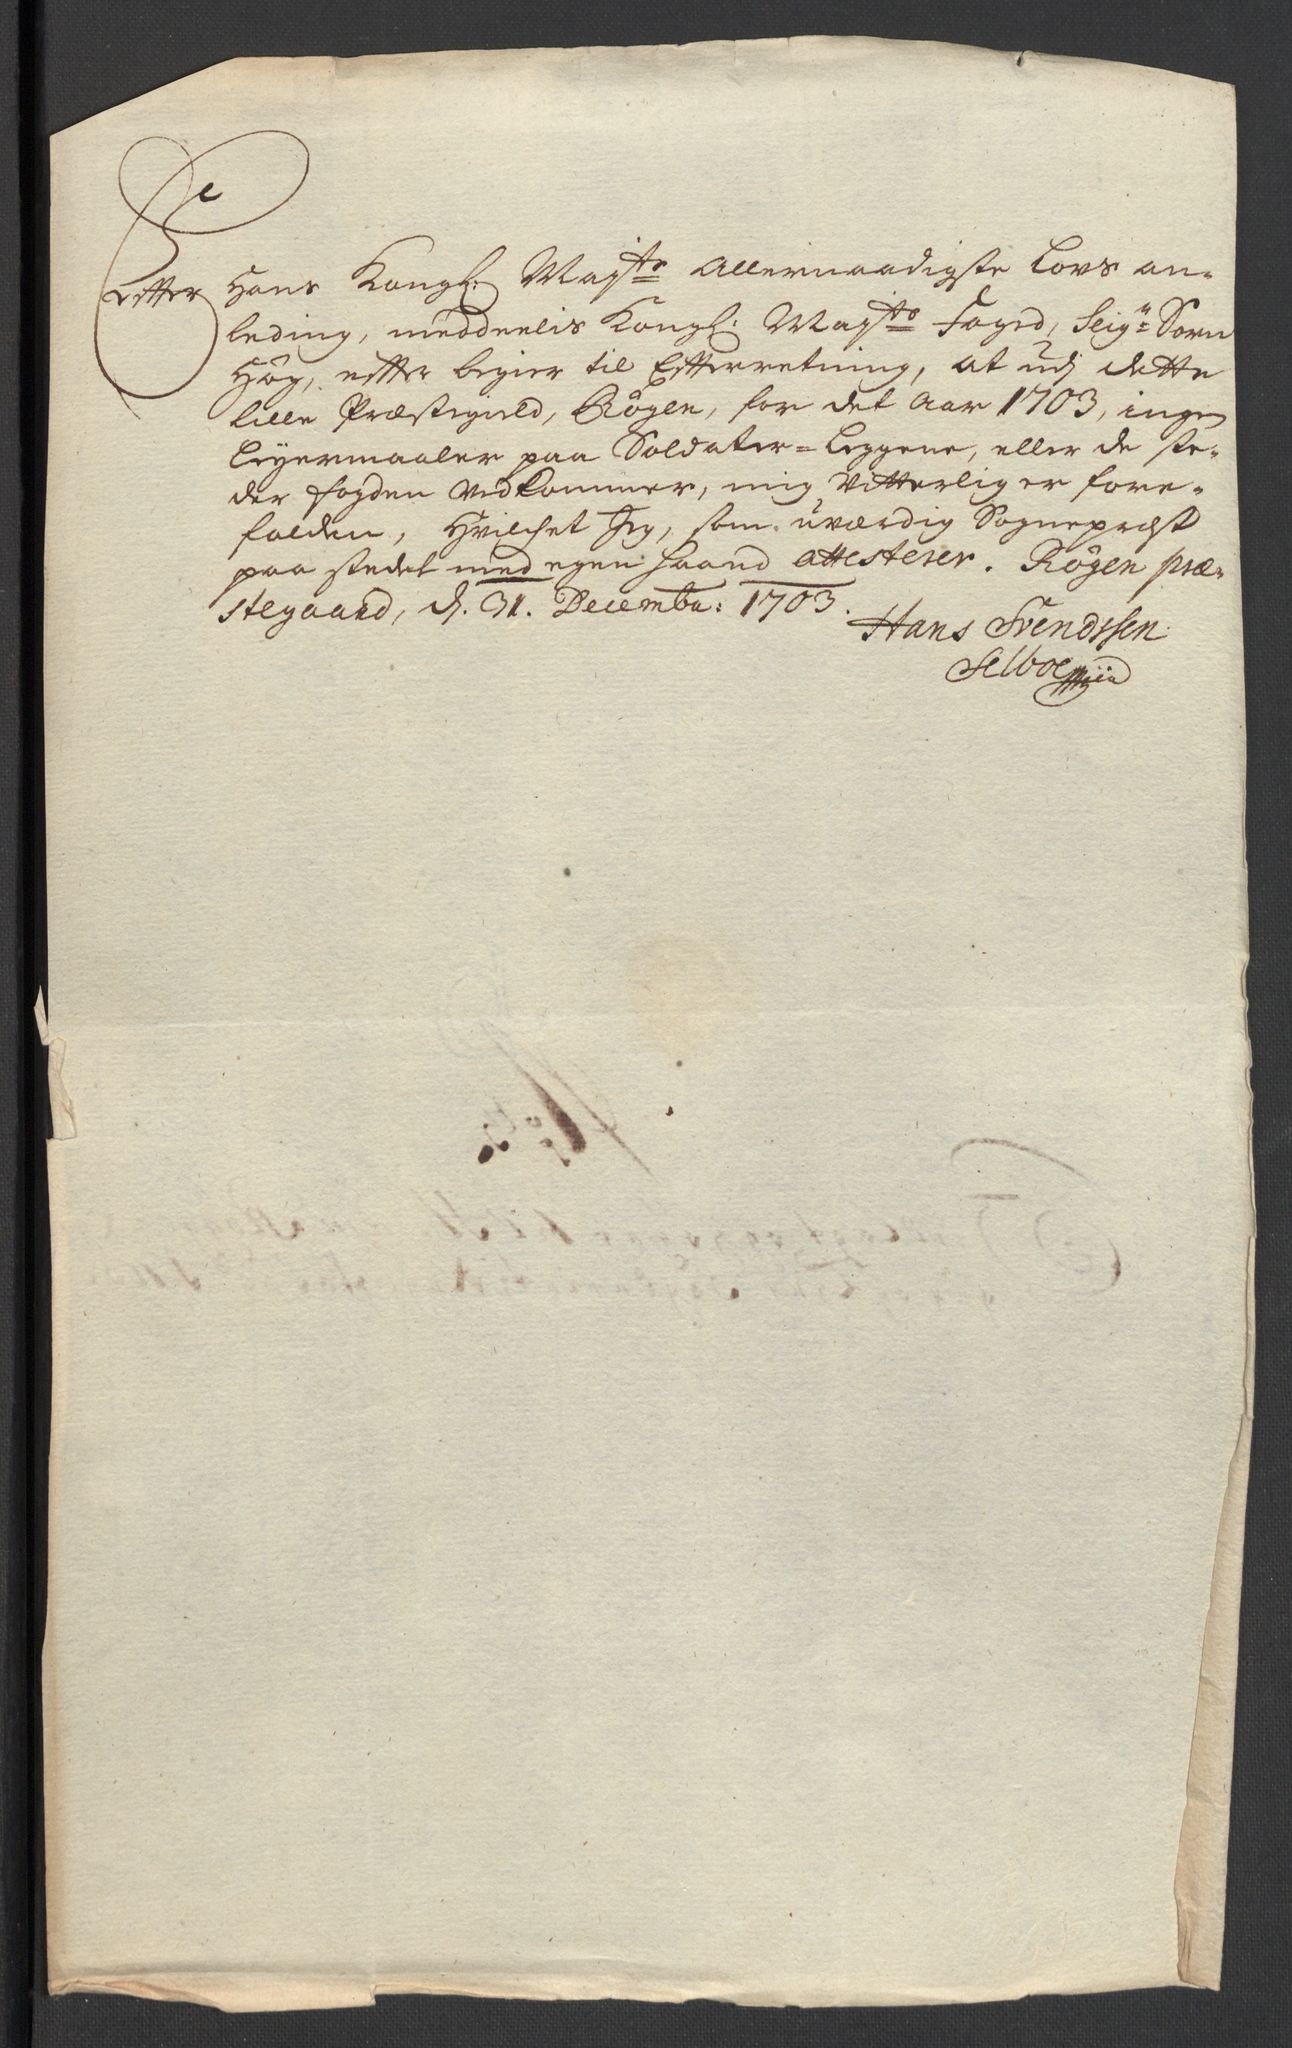 Efter Hans Kongl: Mayts Allernaadigste Lovs an-
leding, meddeelis Kongl: Mayts Foged, Seigr Sorn
Høg, efter begier til Efterretning, at udj dette
lille Præstegield, Røgen, for det Aar 1703, ingen
Leyermaaler paa Soldater-Leggene, eller de ste-
der fogden vedkommer, mig vitterlig er fore-
falden, Hvilchet Jeg, som uværdig Sognepræst
paa stedet med egen haand attesterer. Røgen præ-
stegaard, d. 31. Decembr: 1703.
Hans Svendssen
Selboe